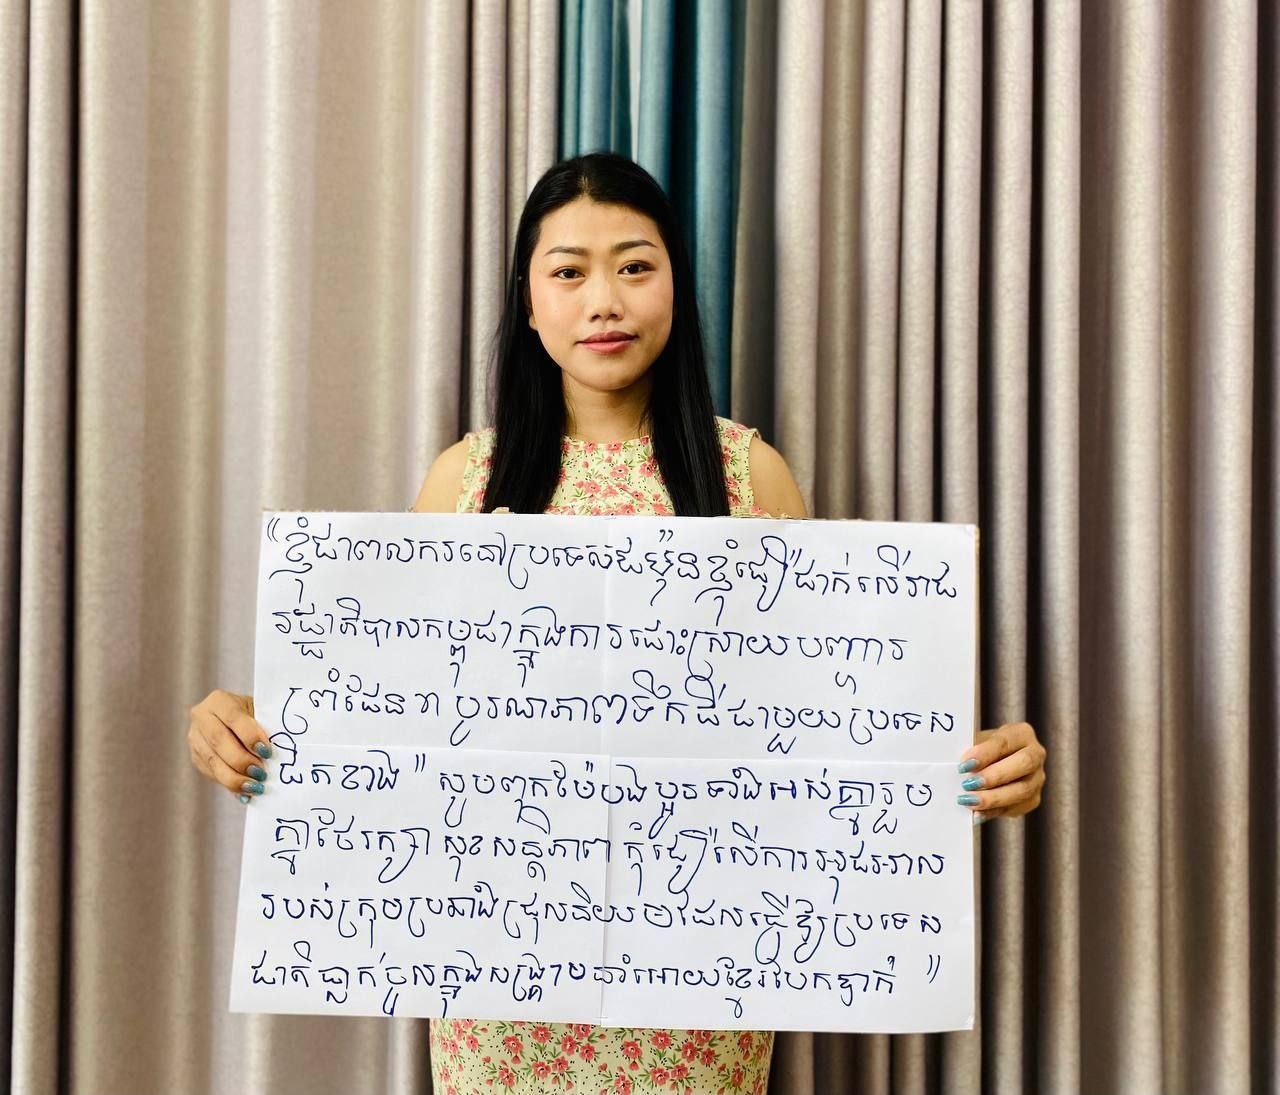 "ខ្ញុំជាពលករនៅប្រទេសជប៉ុនខ្ញុំជឿជាក់លើរាជ
រដ្ឋាភិបាលកម្ពុជាក្នុងការដោះស្រាយបញ្ហារ
ព្រំដែន បូរណភាពទឹកដី ជាមួយប្រទេស
ជិតខាង" សូមពុកម៉ែបងប្អូនទាំងអស់គ្នារួម
គ្នាថែរក្សា សុខសន្តិភាព កុំជឿលើការអុជអាល
របស់ក្រុមប្រឆាំងជ្រុលនិយម ដែលធ្វើឱ្យប្រទេស
ជាតិធ្លាក់ចូលក្នុងសង្គ្រាម នាំអោយខ្មែរបែកបាក់ "